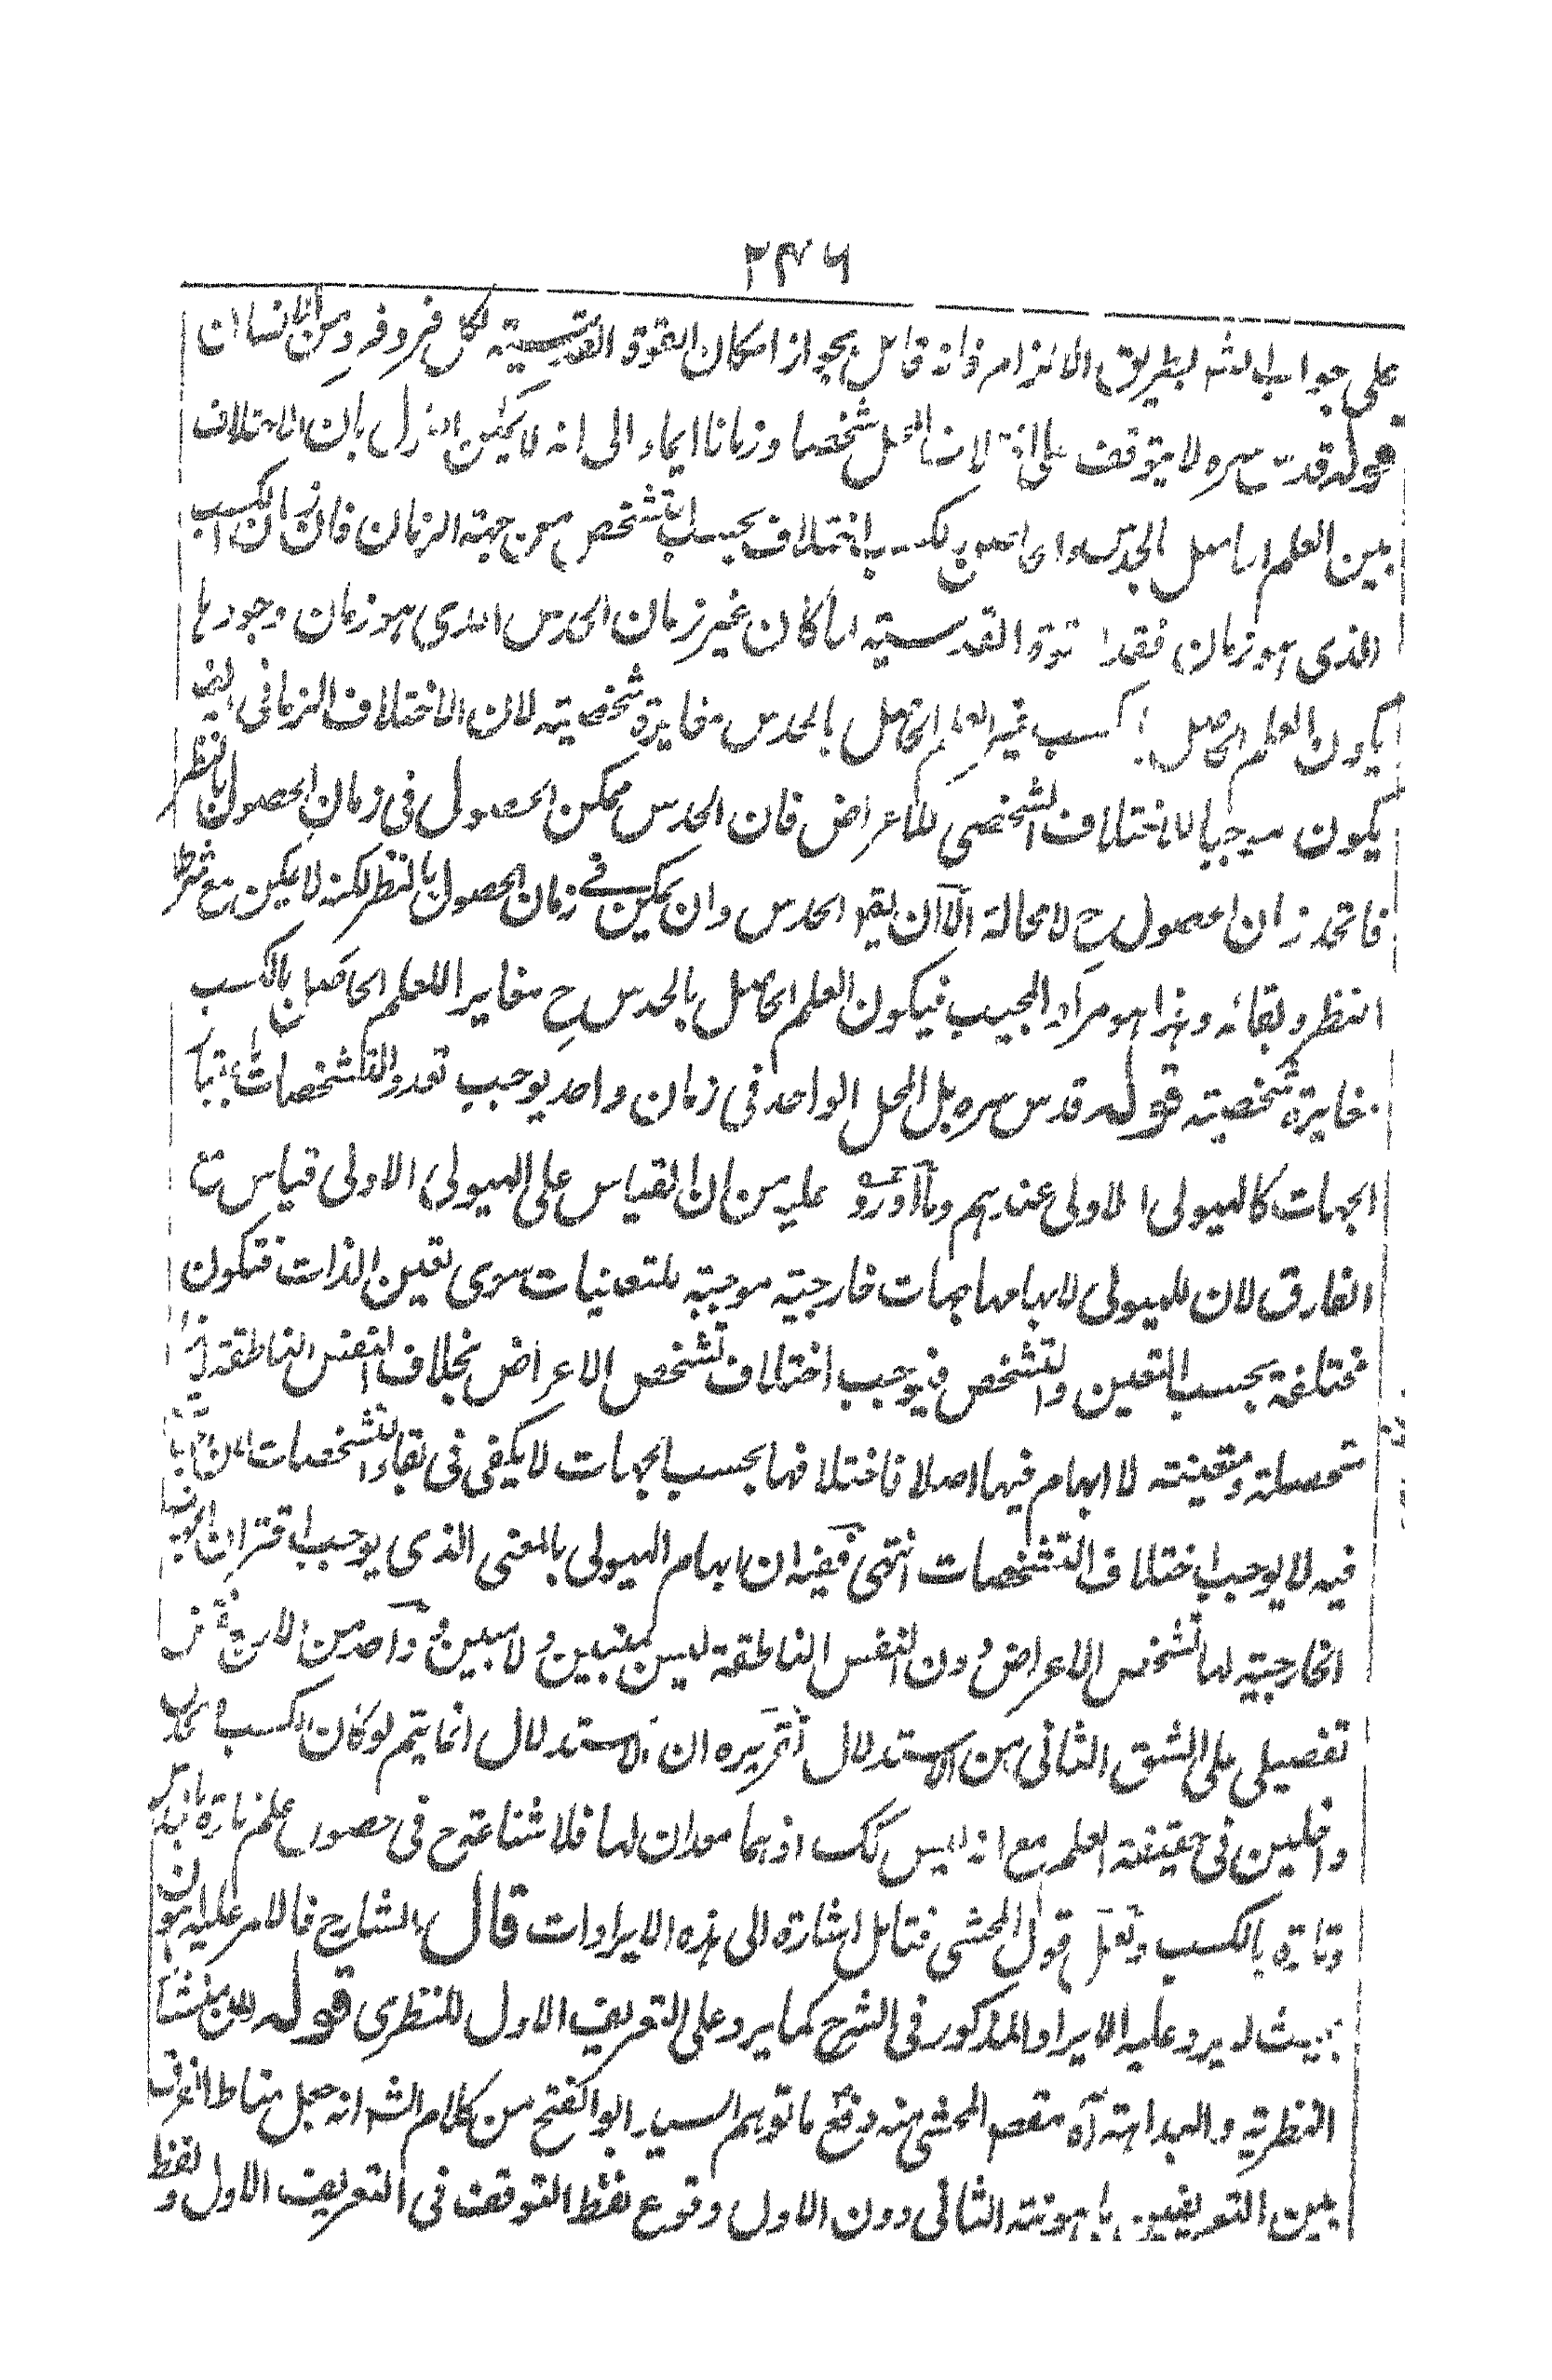 ٢٣٦
على جواب الشه بطريق الالزام فانه قائل بجواز امكان القوة القدسيته لكل فرد فرد من الانسان
قوله قدس سره لا يتوقف على اختلاف المحل شخصا وزمانا ايماء الى انه لا يمكن القول بان الاختلاف
بين العلم الحاصل بالحدس والحاصل بالكسب اختلاف بحسب التشخص من جهته الزمان فان زمان الكسب
الذى هو زمان فقد القوة القدسيته لما كان غير زمان الحدس الذى هو زمان وجودها
يكون العلم الحاصل بالكسب غير العلم الحاصل بالحدس مغايرة شخصيته لان الاختلاف الزمانى ايضا
يكون موجبا للاختلاف الشخصى للاعراض فان الحدس ممكن الحصول فى زمان الحصول بالنظر
فاتحد زمان الحصول ح لا محالة الا ان يقو الحدس وان يمكن فى زمان الحصول بالنظر لكنه لا يمكن مع شرط
النظر وبقائه وهذا هو مراد المجيب فيكون العلم الحاصل بالحدس ح مغايرا للعلم الحاصل بالكسب
مغايرة شخصيته قوله قدس سره بل المحل الواحد فى زمان واحد يوجب تعدد التشخصات
الجهات كالهيولى الاولى عندهم وما اورد عليه من ان القياس على الهيولى الاولى قياس مع
الفارق لان للهيولى لابهامها جهات خارجيته موجبته للتعينات سوى تعين الذات فتكون
مختلفة بحسب التعين والتشخص فيوجب اختلاف تشخص الاعراض بخلاف النفس الناطقة
متحصلة ومتعينته لا ابهام فيها اصلا فاختلافها بحسب الجهات لا يكفى فى بقاء التشخصات
فيه لا يوجب اختلاف التشخصات انتهى ففيه ان ابهام الهيولى بالمعنى الذى يوجب اقتران
الخارجيته لها تشخص الاعراض دون النفس الناطقة ليس ببين ولا مبين و واحد من
تفصيلى على الشق الثانى من الاستدلال تقريره ان الاستدلال انما يتم لو كان الكسب
داخلين فى حقيقة العلم مع انه ليس كك اذ هما معدان لها فلا شناعة ح فى حصول علم تارة
وتارة بالكسب ولعل قول المحشى فتامل اشارة الى هذه الايرادات قال الشارح فالامر عليه اهون
بحيث لا يرد عليه الايراد المذكور فى الشرح كما يرد على التعريف الاول للنظرى قوله
النظرية والبداهته آه مقصود المحشى منه دفع ما توهم السيد ابو الفتح من كلام الشه انه جعل مناط الفرق
بين التعريفين باهونته الثانى دون الاول وقوع لفظ التوقف فى التعريف الاول ولفظ